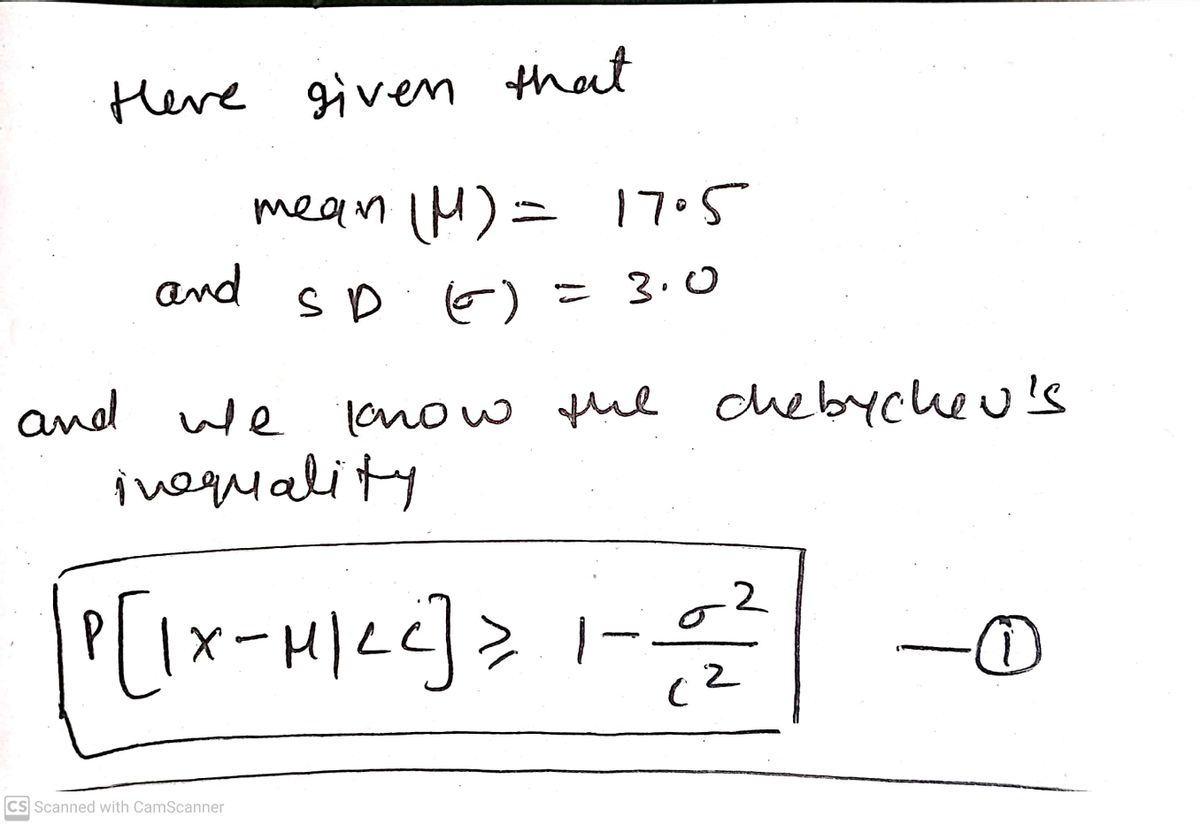 Here given that
mean (μ) = 17.5
and SD (σ) = 3.0
and we know the chebychev's
inequality
P[|x-μ|<c] ≥ 1 - σ²/c² —①
CS Scanned with CamScanner